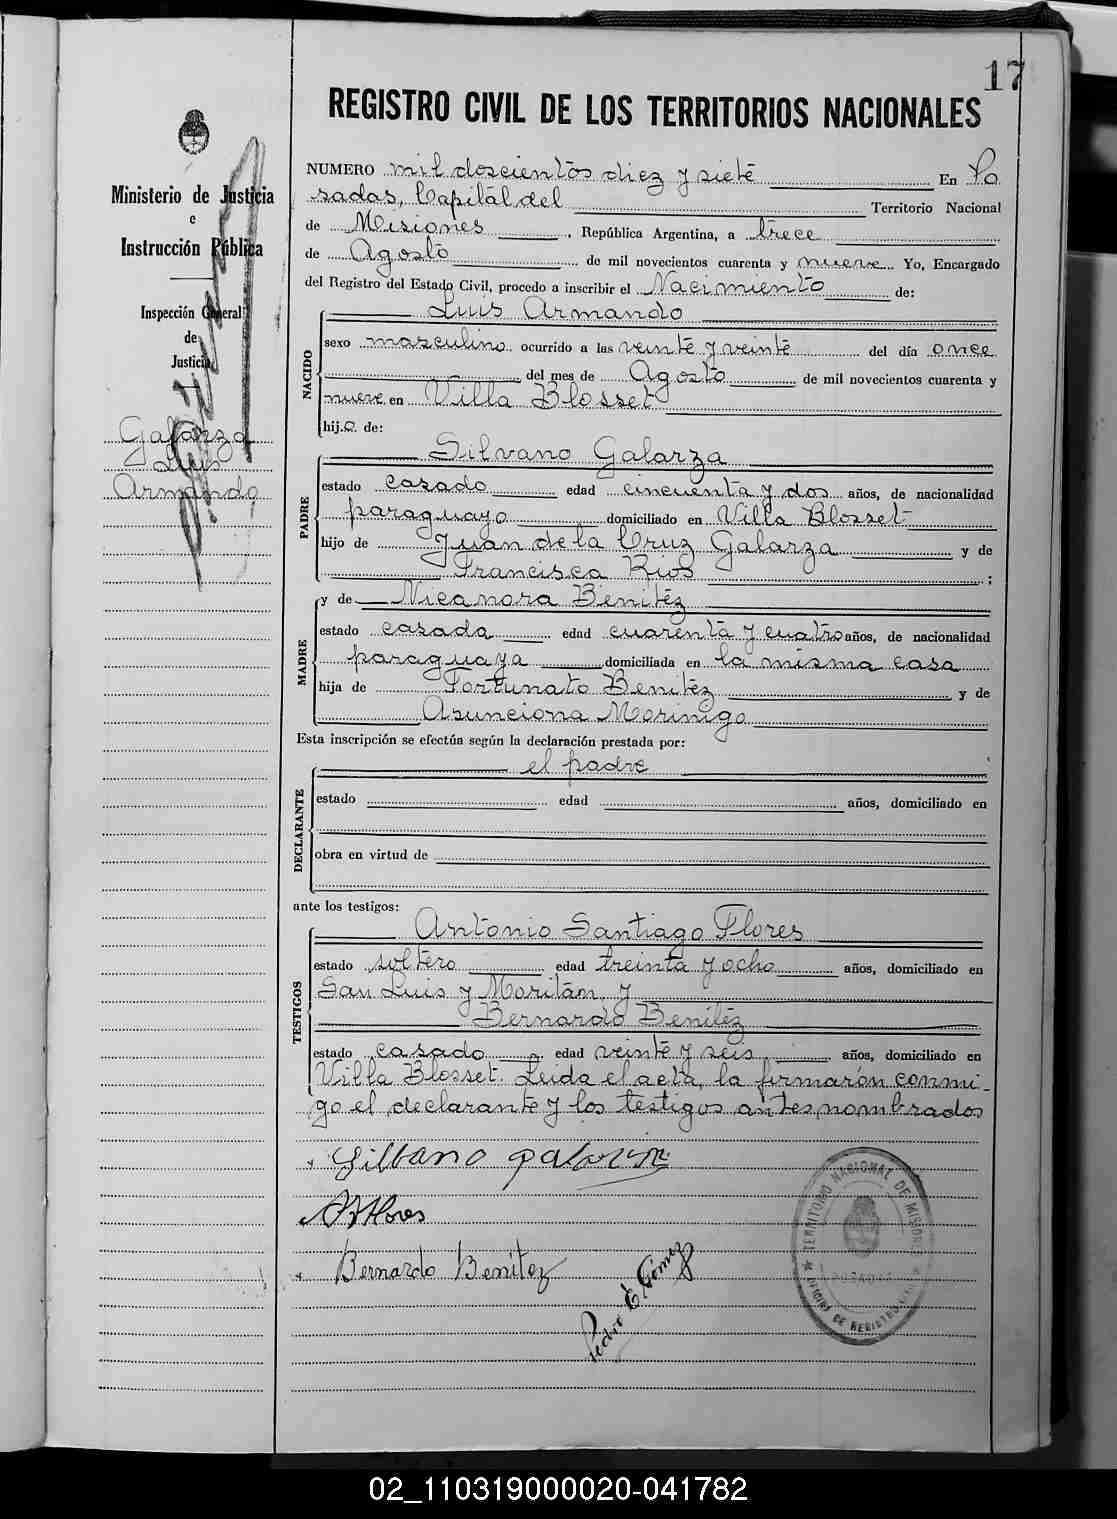 17
REGISTRO CIVIL DE LOS TERRITORIOS NACIONALES
Ministerio de Justicia
e
Instrucción Pública
Inspección General
de
Justicia
Galarza
Luis
Armando
NUMERO mil doscientos diez y siete En Po
sadas, Capital del Territorio Nacional
de Misiones, República Argentina, a trece
de Agosto de mil novecientos cuarenta y nueve Yo, Encargado
del Registro del Estado Civil, procedo a inscribir el Nacimiento de:
NACIDO
Luis Armando
sexo masculino ocurrido a las veinte y veinte del día once
del mes de Agosto de mil novecientos cuarenta y
nueve en Villa Blosset
hij.o de:
PADRE
Silvano Galarza
estado casado edad cincuenta y dos años, de nacionalidad
paraguayo domiciliado en Villa Blosset
hijo de Juan de la Cruz Galarza y de
Francisca Rios ;
MADRE
y de Nicanora Benitéz
estado casada edad cuarenta y cuatro años, de nacionalidad
paraguaya domiciliada en la misma casa
hija de Fortunato Benitéz y de
Asunciona Morinigo
Esta inscripción se efectúa según la declaración prestada por:
DECLARANTE
el padre
estado edad años, domiciliado en
obra en virtud de
ante los testigos:
TESTIGOS
Antonio Santiago Flores
estado soltero edad treinta y ocho años, domiciliado en
San Luis y Moritán, y
Bernardo Benitéz
estado casado edad veinte y seis años, domiciliado en
Villa Blosset. Leida el acta, la firmarón conmi-
go el declarante y los testigos antes nombrados
Silbano
Flores
Bernardo Benitez
Pedro E. Gómez
TERRITORIO NACIONAL DE MISIONES
POSADAS
OFICINA DE REGISTRO CIVIL
02_110319000020-041782